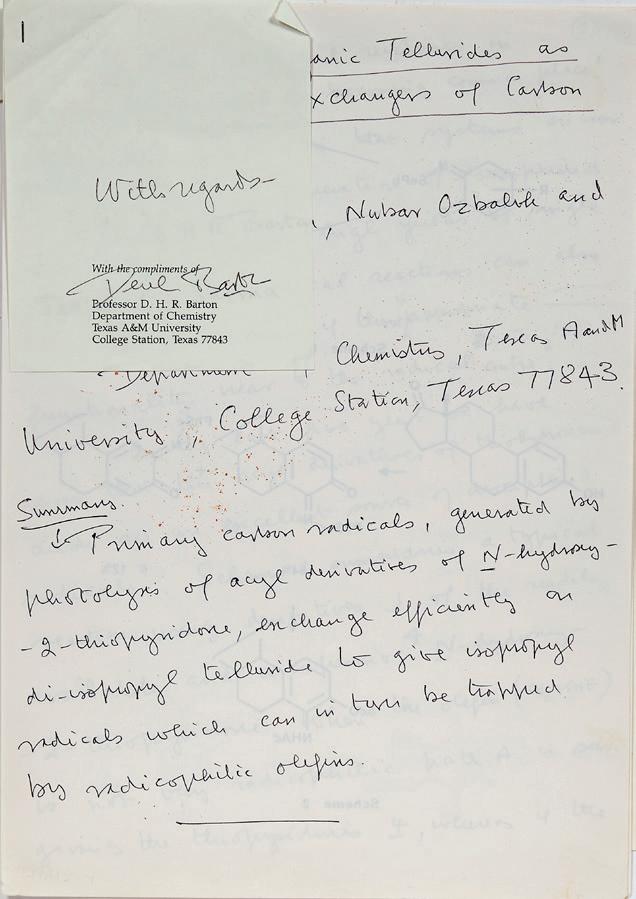 1
anic Tellurides as
xchangers of Carbon
With regards-
, Nubar Ozbalik and
With the compliments of
Derek Barton
Professor D. H. R. Barton
Department of Chemistry
Texas A&M University
College Station, Texas 77843
Department Chemistry, Texas AandM
University, College Station, Texas 77843.
Summary.
Primary carbon radicals, generated by
photolysis of acyl derivatives of N-hydroxy-
-2-thiopyridone, exchange efficiently on
di-isopropyl telluride to give isopropyl
radicals which can in turn be trapped
by radicophilic olefins.
NHAc
Scheme 2